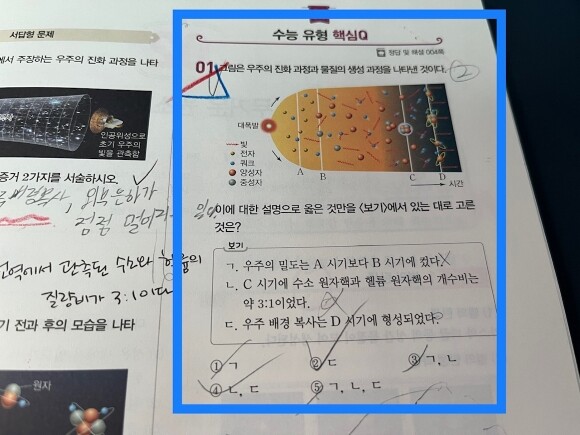 서답형 문제
에서 주장하는 우주의 진화 과정을 나타
인공위성으로
초기 우주의
빛을 관측함
증거 2가지를 서술하시오.
외부은하가
점점 멀어지
전역에서 관측된 수소와 헬륨의
질량비가 3:1이다
기 전과 후의 모습을 나타
원자
수능 유형 핵심Q
정답 및 해설 004쪽
01 그림은 우주의 진화 과정과 물질의 생성 과정을 나타낸 것이다.
2
대폭발
빛
전자
쿼크
양성자
중성자
A B C D
시간
이에 대한 설명으로 옳은 것만을 <보기>에서 있는 대로 고른
것은?
보기
ㄱ. 우주의 밀도는 A 시기보다 B 시기에 컸다.
ㄴ. C 시기에 수소 원자핵과 헬륨 원자핵의 개수비는
약 3:1이었다.
ㄷ. 우주 배경 복사는 D 시기에 형성되었다.
① ㄱ ② ㄷ ③ ㄱ, ㄴ
④ ㄴ, ㄷ ⑤ ㄱ, ㄴ, ㄷ